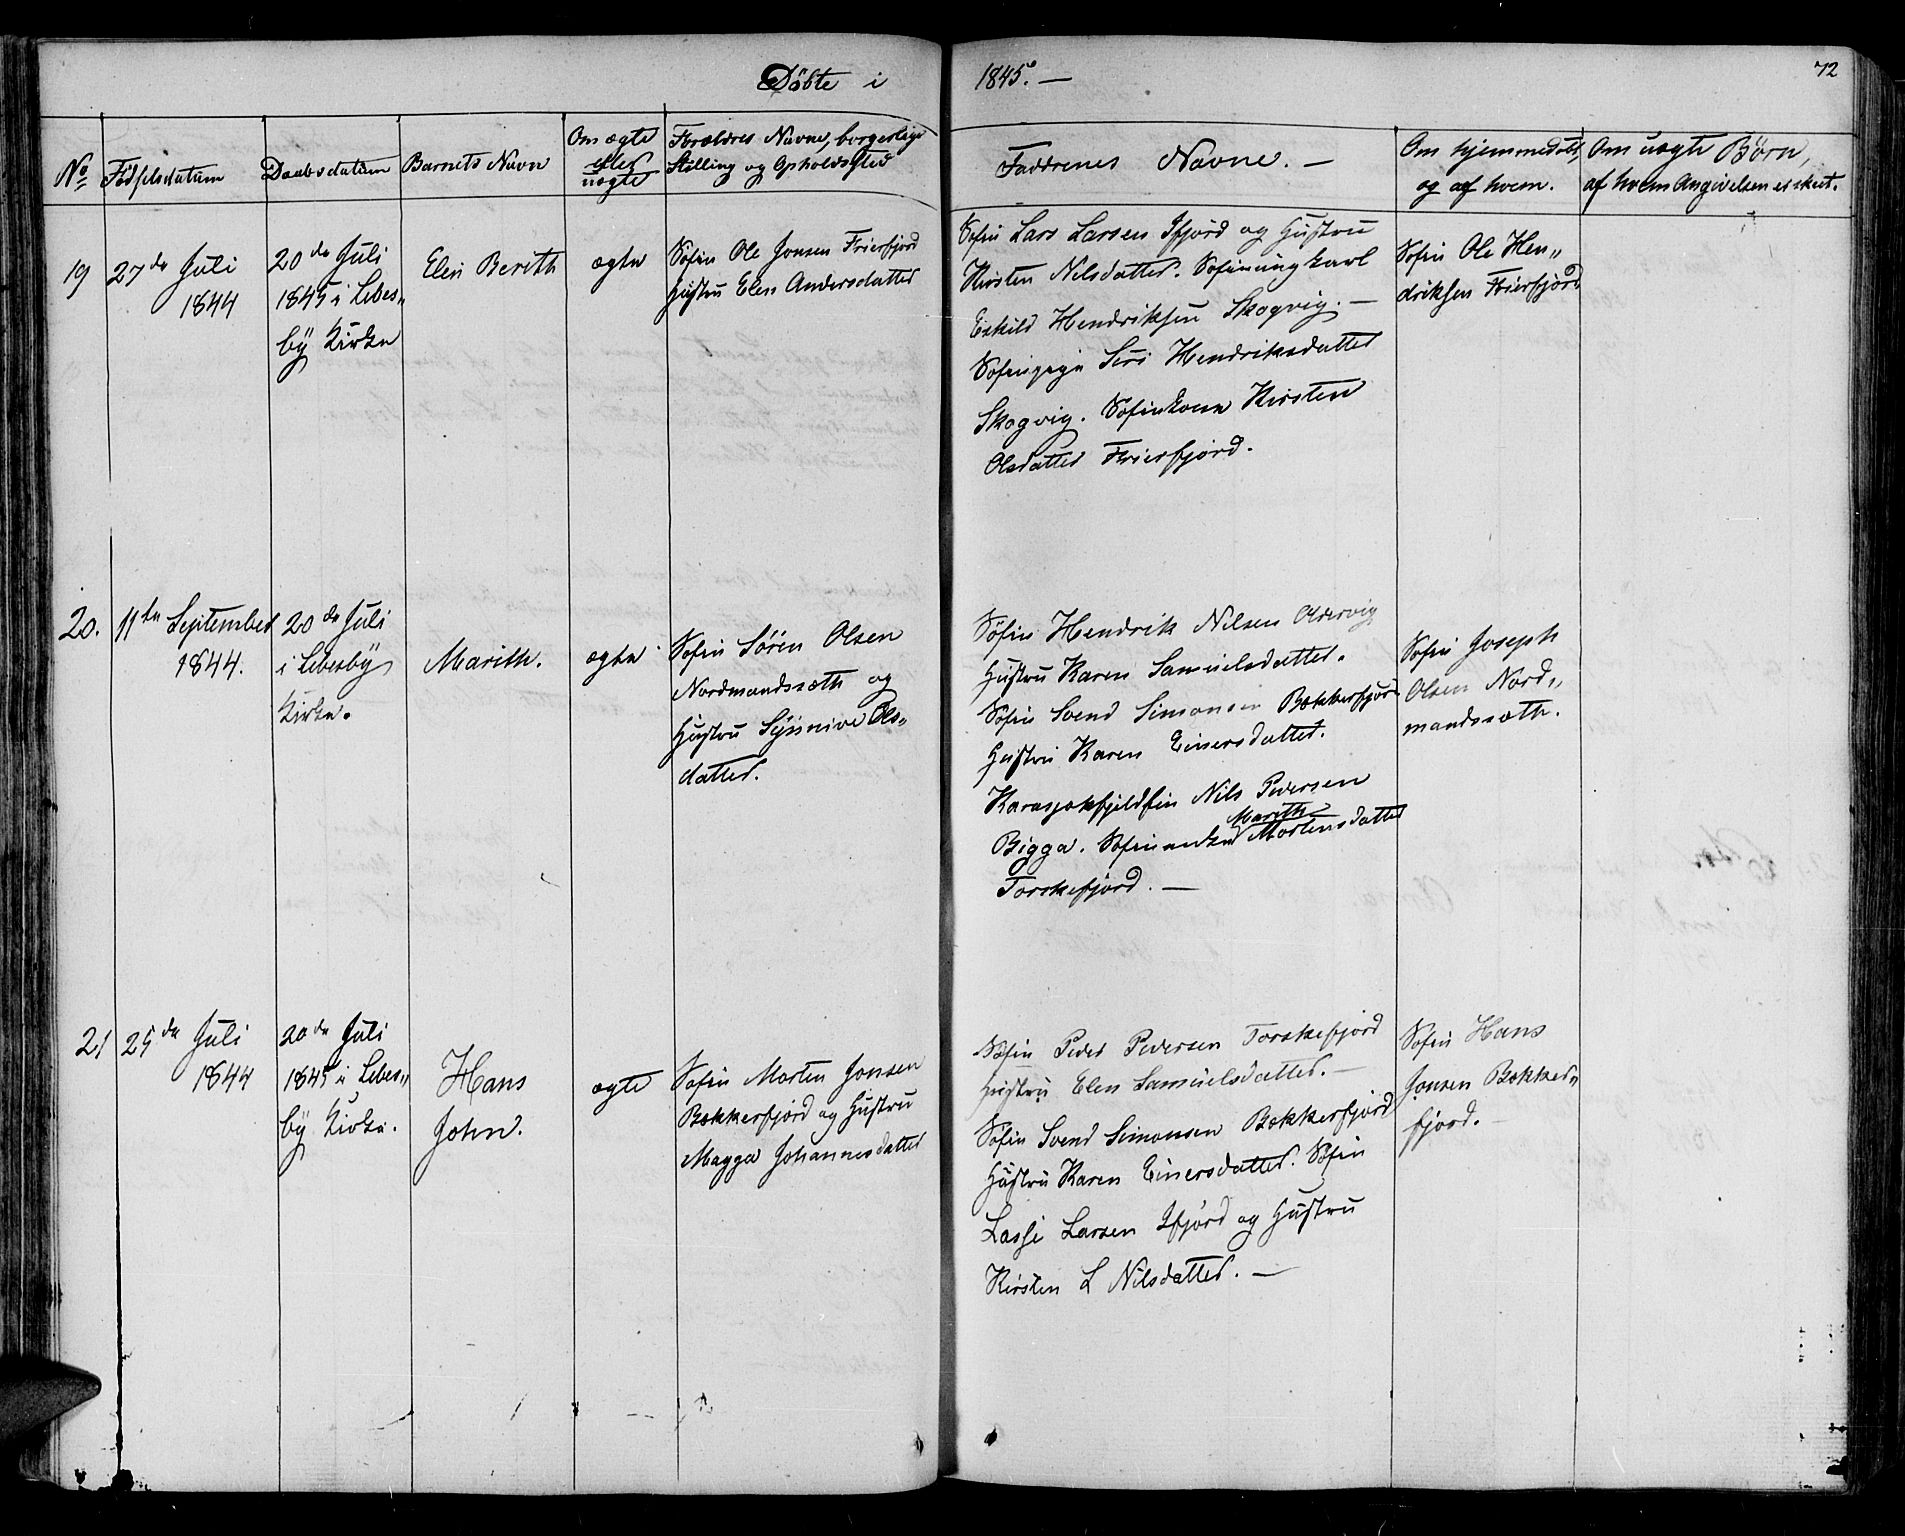 Döbte i 1845. —
72
No
Födselsdatum
Daabsdatum
Barnets Navn
Om ægte
eller
uægte
Forældres Navne, borgerlige
Stilling og Opholdssted
Faddrenes Navne. —
Om hjemmedöbt,
og af hvem.
Om uægte Börn,
af hvem Angivelsen er skeet.
19
27de Juli
1844
20de Juli
1845 i Lebes„
by Kirke
Elen Berith
ægte
Söfin Ole Jonsen Frierfjord
Hustru Elen Andersdatter
Söfin Lars Larsen Ifjord og Hustru
Kirsten Nilsdatter. Söfinungkarl
Eskild Hendriksen Skogvig. —
Söfinpige Siri Hendriksdatter
Skogvig. Söfinkone Kirsten
Olsdatter Frierfjord.
Söfin Ole Hen„
driksen Frierfjord
20.
11te September
1844.
20de Juli
i Lebesby
Kirke.
Marith.
ægte
Söfin Sören Olsen
Nordmandssæth og
Hustru Synnive Ols„
datter.
Söfin Hendrik Nilsen Oldervig
Hustru Karen Samuelsdatter.
Söfin Svend Simonsen Bekkerfjord
Hustru Karen Einersdatter.
Karasjokfjeldfin Nils Pedersen
Bigga. Söfinenke Marith Mortensdatter
Torskefjord. —
Söfin Joseph
Olsen Nord„
mandssæth.
21
25de Juli
1844
20de Juli
1845 i Lebes„
by Kirke.
Hans
John.
ægte
Söfin Morten Jonsen
Bekkerfjord og Hustru
Magga Johannesdatter
Söfin Peder Pedersen Torskefjord
Hustru Elen Samuelsdatter. —
Söfin Svend Simonsen Bekkerfjord
Hustru Karen Einersdatter. Söfin
Lasse Larsen Ifjord og Hustru
Kirsten L Nilsdatter. —
Söfin Hans
Jonsen Bekker„
fjord.